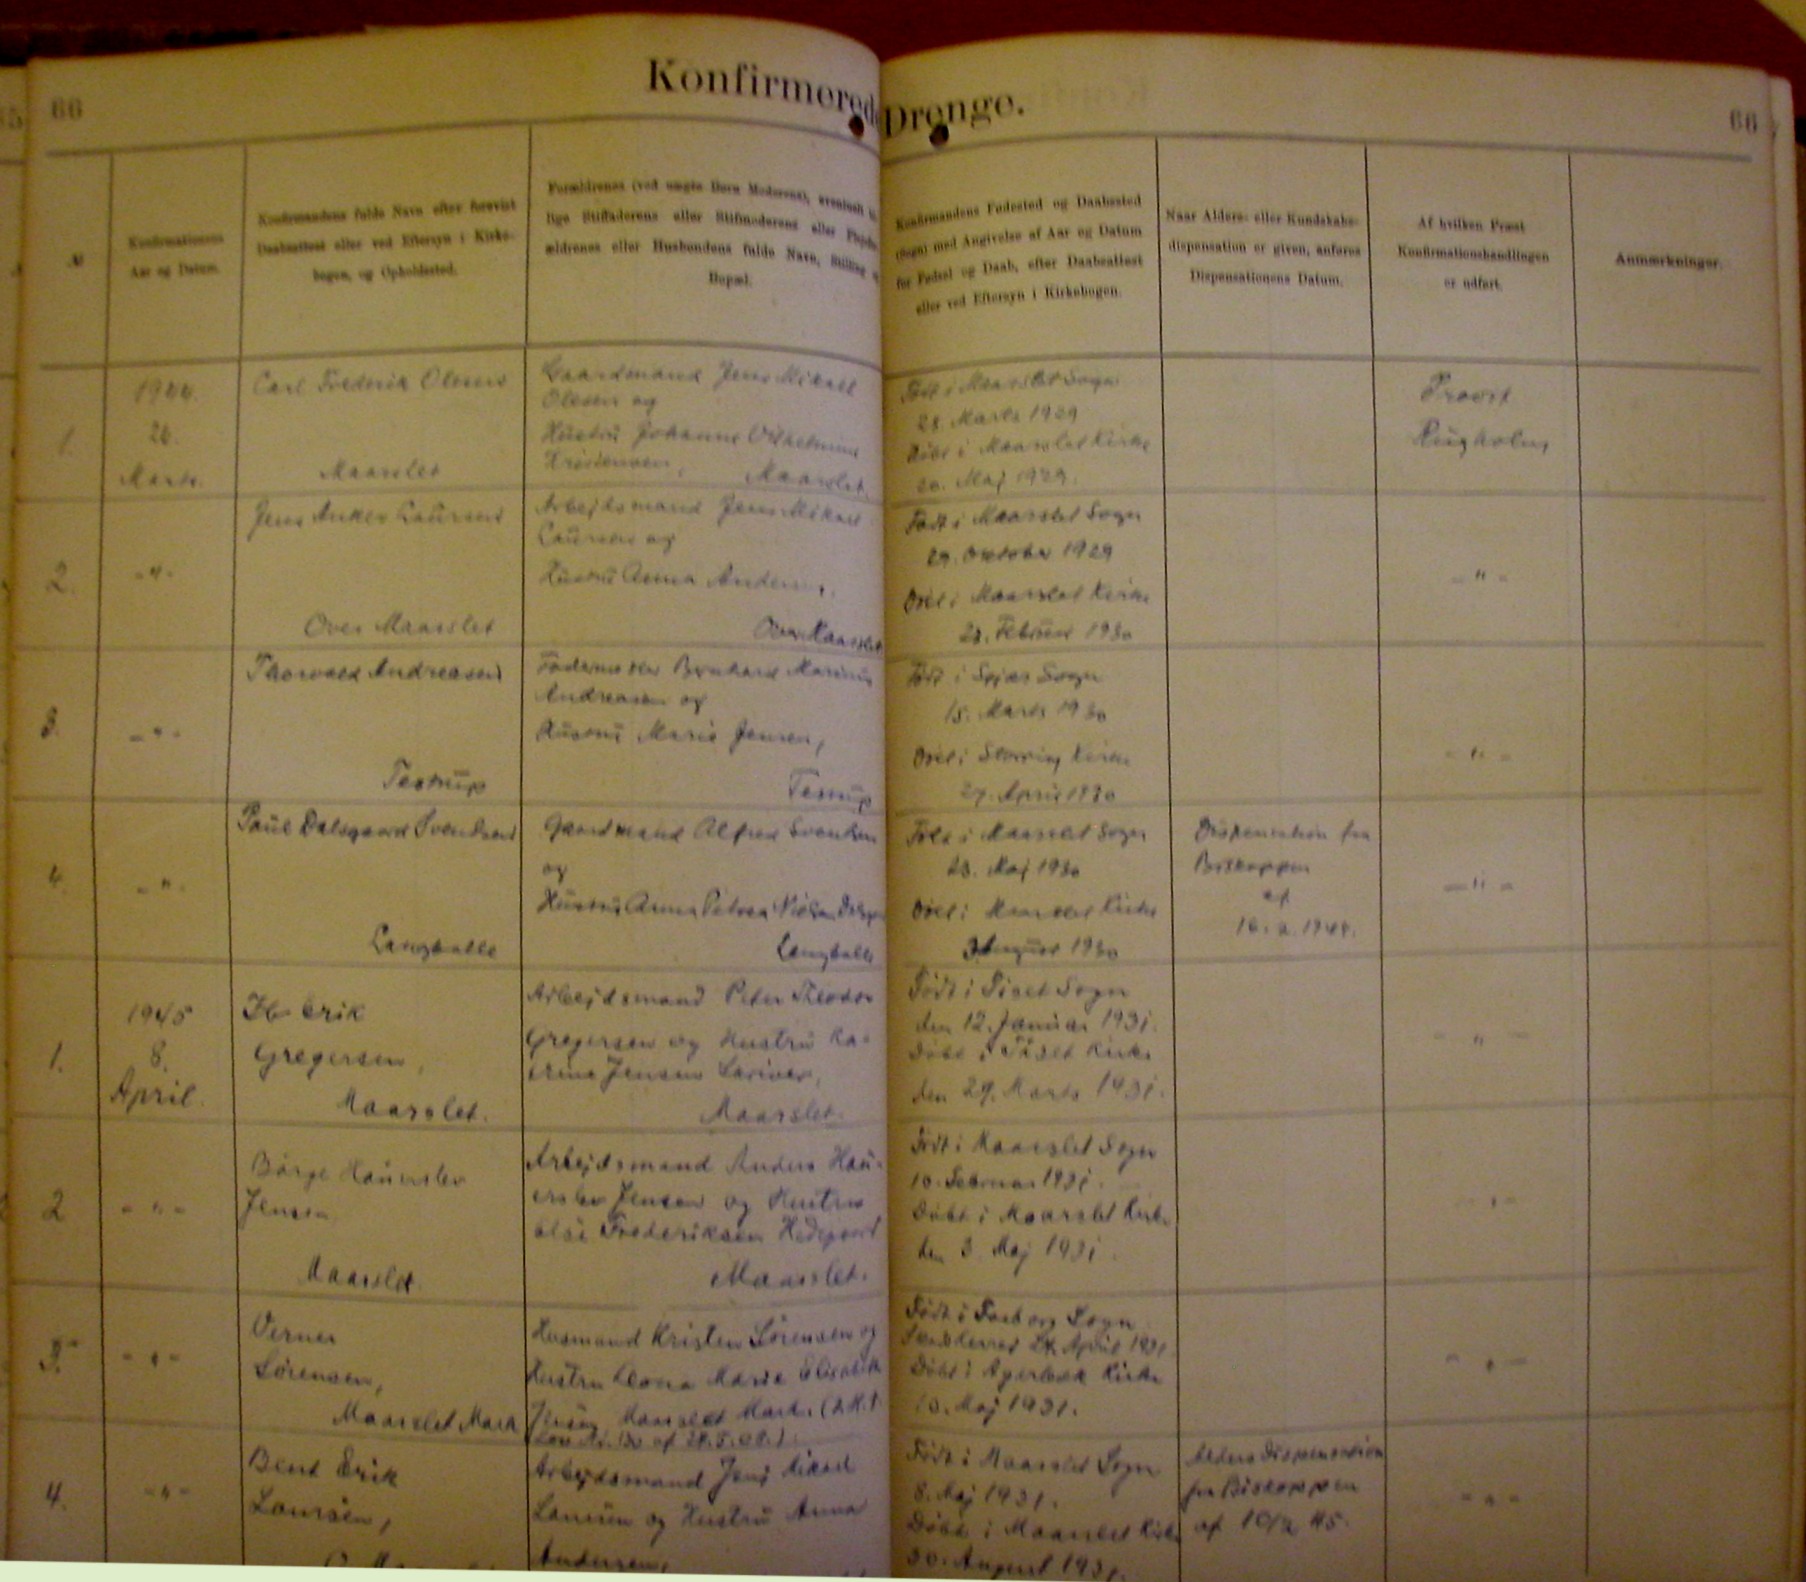 66
Konfirmerede Drenge.
66
№
Konfirmationens
Aar og Datum.
Konfirmandens fulde Navn efter forevist
Daabsattest eller ved Eftersyn i Kirke-
bogen, og Opholdssted.
Forældrenes (ved uægte Børn Moderens), eventuelt
lige Stiffaderens eller Stifmoderens eller Plejefor-
ældrenes eller Husbondens fulde Navn, Stilling
Bopæl.
Konfirmandens Fødested og Daabssted
(Sogn) med Angivelse af Aar og Datum
for Fødsel og Daab, efter Daabsattest
eller ved Eftersyn i Kirkebogen.
Naar Alders- eller Kundskabs-
dispensation er given, anføres
Dispensationens Datum.
Af hvilken Præst
Konfirmationshandlingen
er udført.
Anmærkninger.
1.
1944.
26.
Marts.
Carl Frederik Olesen
Maarslet
Gaardmand Jens Mikael
Olesen og
Hustru Johanne Vilhelmine
Kristensen,
Maarslet.
Født i Maarslet Sogn
28. Marts 1929
Døbt i Maarslet Kirke
20. Maj 1929.
Provst
2.
-"-
Jens Anker Laursen
Over Maarslet
Arbejdsmand Jens Mikael
Laursen og
Hustru Anna Andersen,
Over Maarslet
Født i Maarslet Sogn
29. Oktober 1929
Døbt i Maarslet Kirke
23. Februar 1930
-"-
3.
-"-
Thorvald Andreasen
Testrup
Fodermester Bernhard Marinus
Andreasen og
Hustru Marie Jensen,
Testrup
Født i Sjær Sogn
15. Marts 1930
Døbt i Storring Kirke
27. April 1930
-"-
4.
-"-
Poul Dalsgaard Svendsen
Langballe
Gaardmand Alfred Svendsen
og
Hustru Anna Petrea Nielsen
Langballe
Født i Maarslet Sogn
23. Maj 1930
Døbt i Maarslet Kirke
August 1930
Dispensation fra
Biskoppen
af
16. 2. 1944.
-"-
1.
1945
8.
April.
Ib Erik
Gregersen,
Maarslet.
Arbejdsmand Peter Theodor
Gregersen og Hustru Ka-
trine Jensen
Maarslet.
Født i Tiset Sogn
den 12. Januar 1931.
Døbt i Tiset Kirke
den 29. Marts 1931.
-"-
2
-"-
Børge Haurslev
Jensen
Maarslet.
Arbejdsmand Anders Hau-
erslev Jensen og Hustru
Else Frederiksen
Maarslet.
Født i Maarslet Sogn
10. Februar 1931.
Døbt i Maarslet Kirke
den 3. Maj 1931.
-"-
3.
-"-
Verner
Sørensen,
Maarslet Mark
Husmand Kristen Sørensen og
Hustru Leona Marie Elisabeth
Jensen, Maarslet Mark.
Lov Nr. 130 af 24.5.05.)
Født i Faaborg Sogn
Skads Herred 24. April 1931.
Døbt i Agerbæk Kirke
10. Maj 1931.
-"-
4.
-"-
Bent Erik
Laursen,
Arbejdsmand Jens Mikael
Laursen og Hustru Anna
Andersen,
Født i Maarslet Sogn
8. Maj 1931.
Døbt i Maarslet Kirke
30. August 1931.
Aldersdispensation
fra Biskoppen
af 10/2 45.
-"-